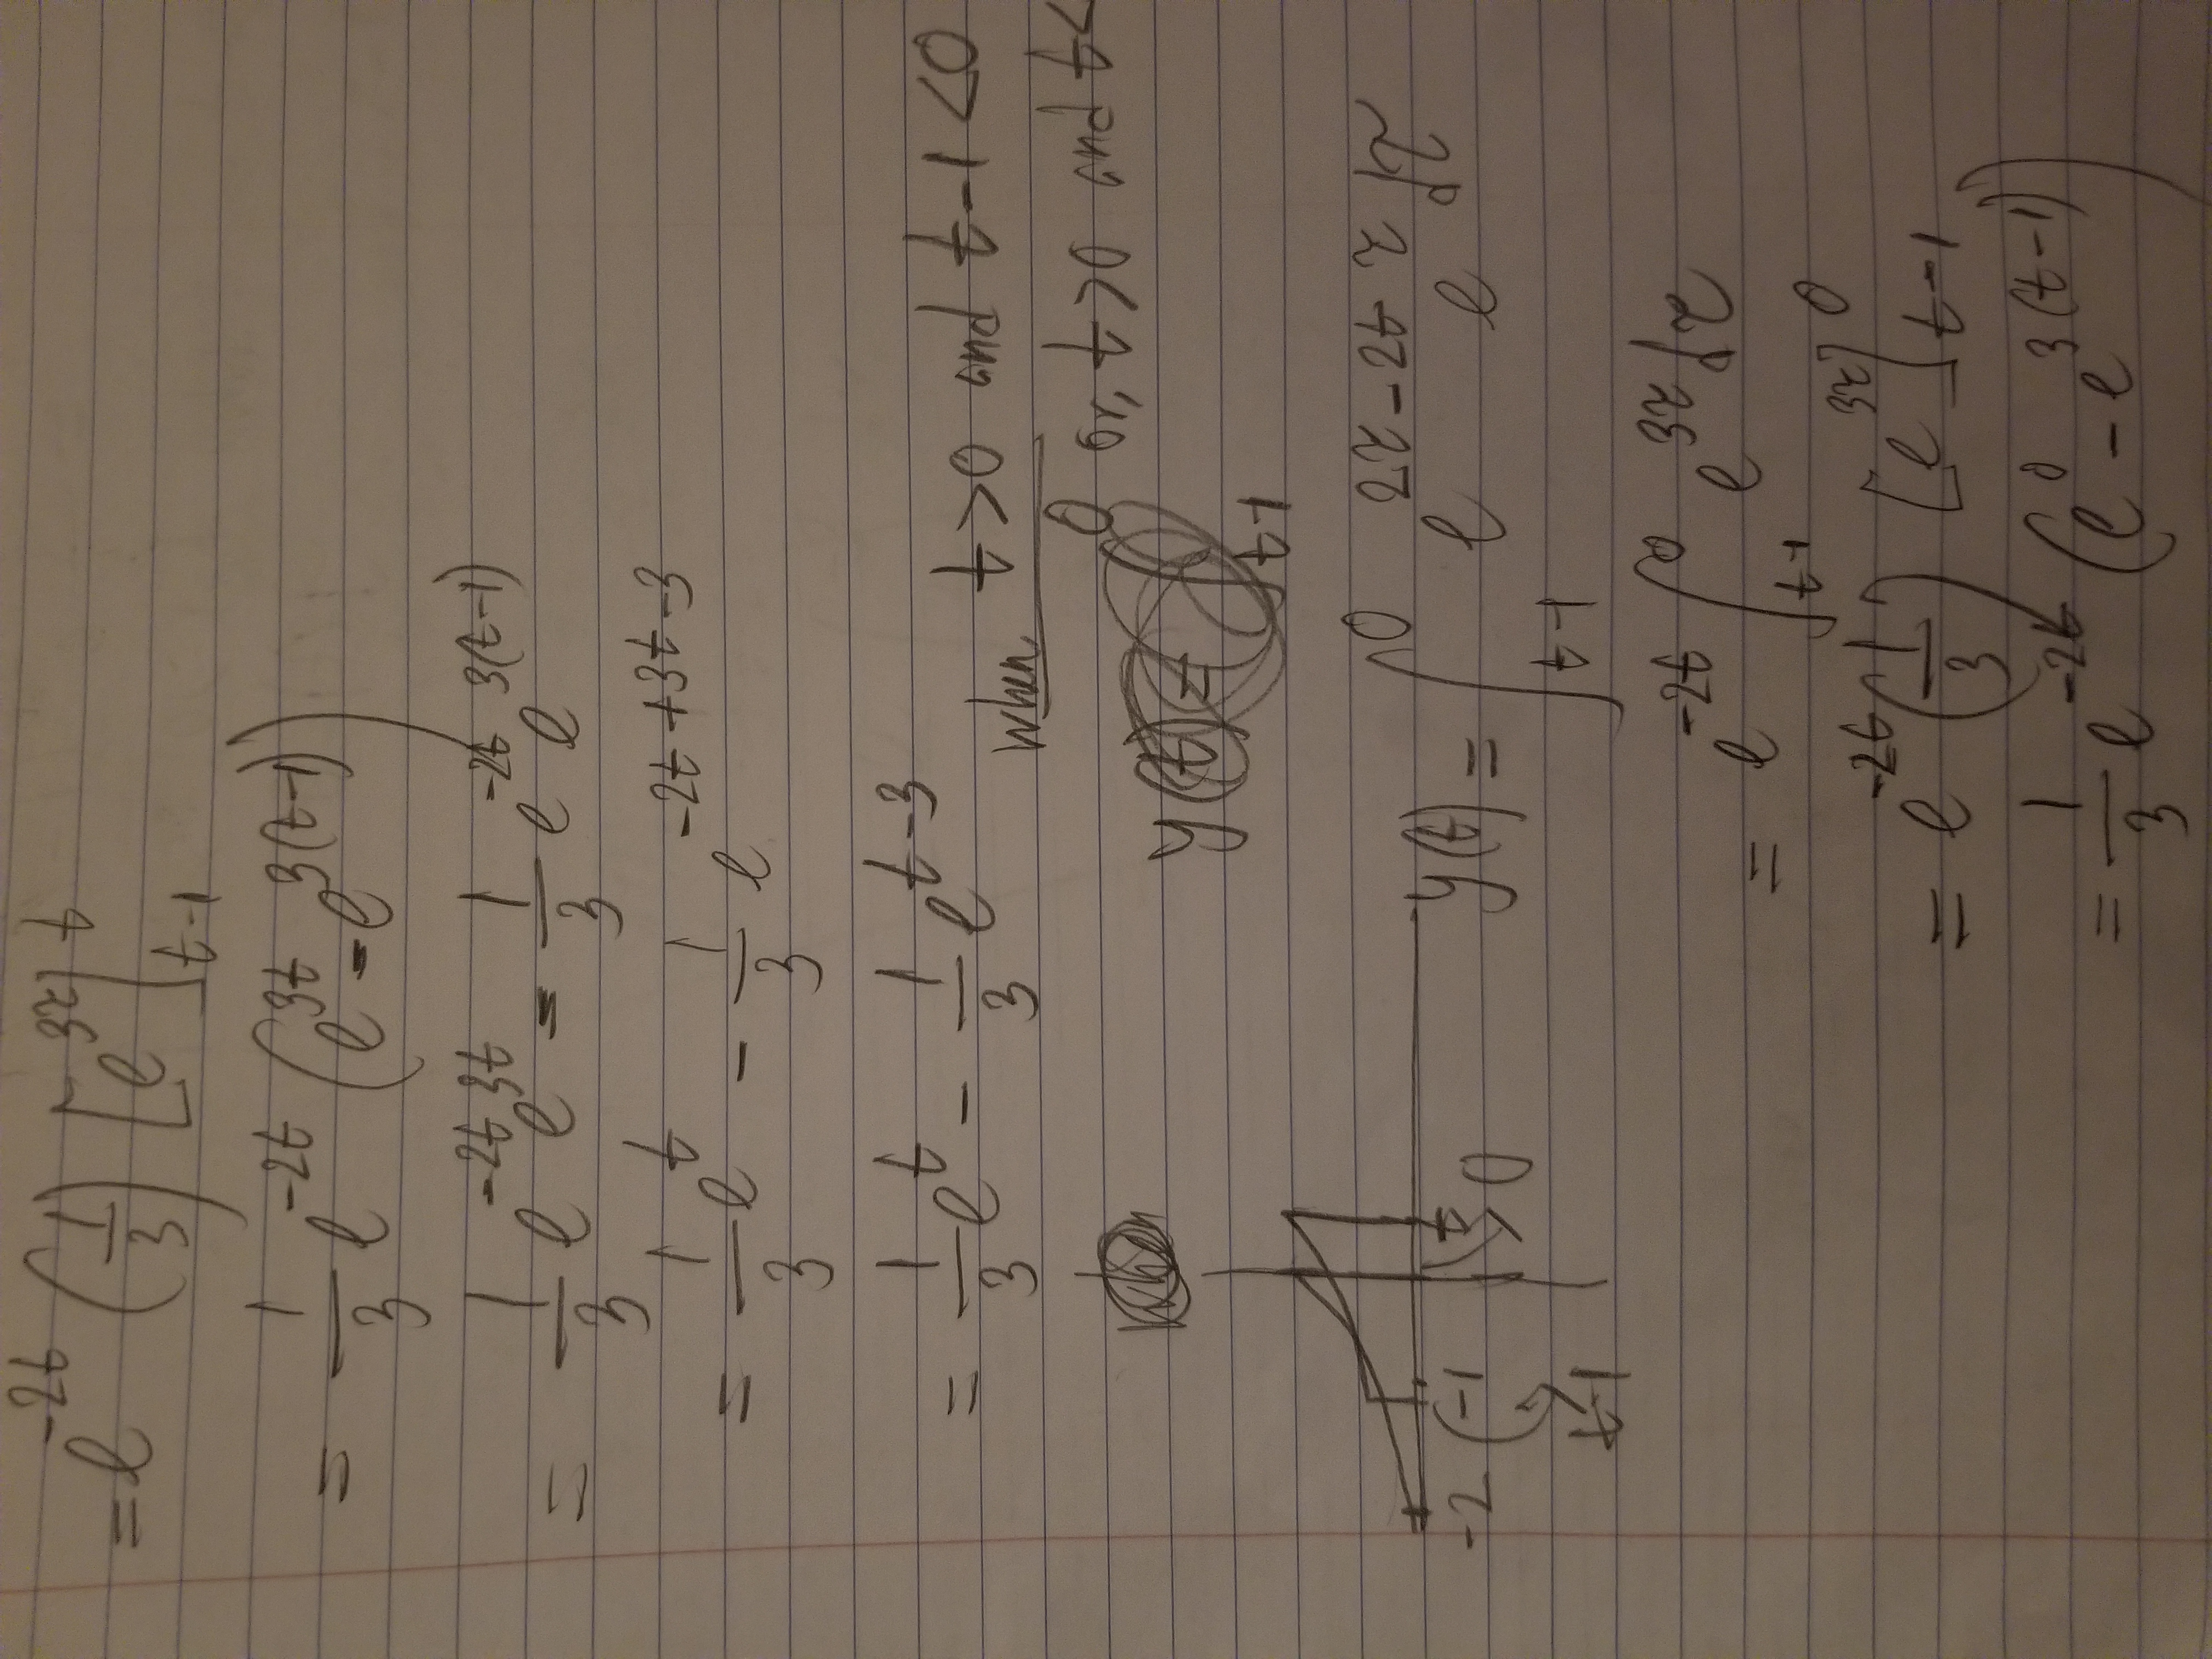 = e^{-2t} (1/3) [e^{3τ}]_{t-1}^{t}
= 1/3 e^{-2t} (e^{3t} - e^{3(t-1)})
= 1/3 e^{-2t} e^{3t} - 1/3 e^{-2t} e^{3(t-1)}
= 1/3 e^{t} - 1/3 e^{-2t+3t-3}
= 1/3 e^{t} - 1/3 e^{t-3}
when t>0 and t-1<0
or, t>0 and t<
when
y(t) = ∫_{t-1}^{0}
-2 -1 t
t-1 0
y(t) = ∫_{t-1}^{0} e^{2τ-2t} e^{τ} dτ
= e^{-2t} ∫_{t-1}^{0} e^{3τ} dτ
= e^{-2t} (1/3) [e^{3τ}]_{t-1}^{0}
= 1/3 e^{-2t} (e^{0} - e^{3(t-1)})